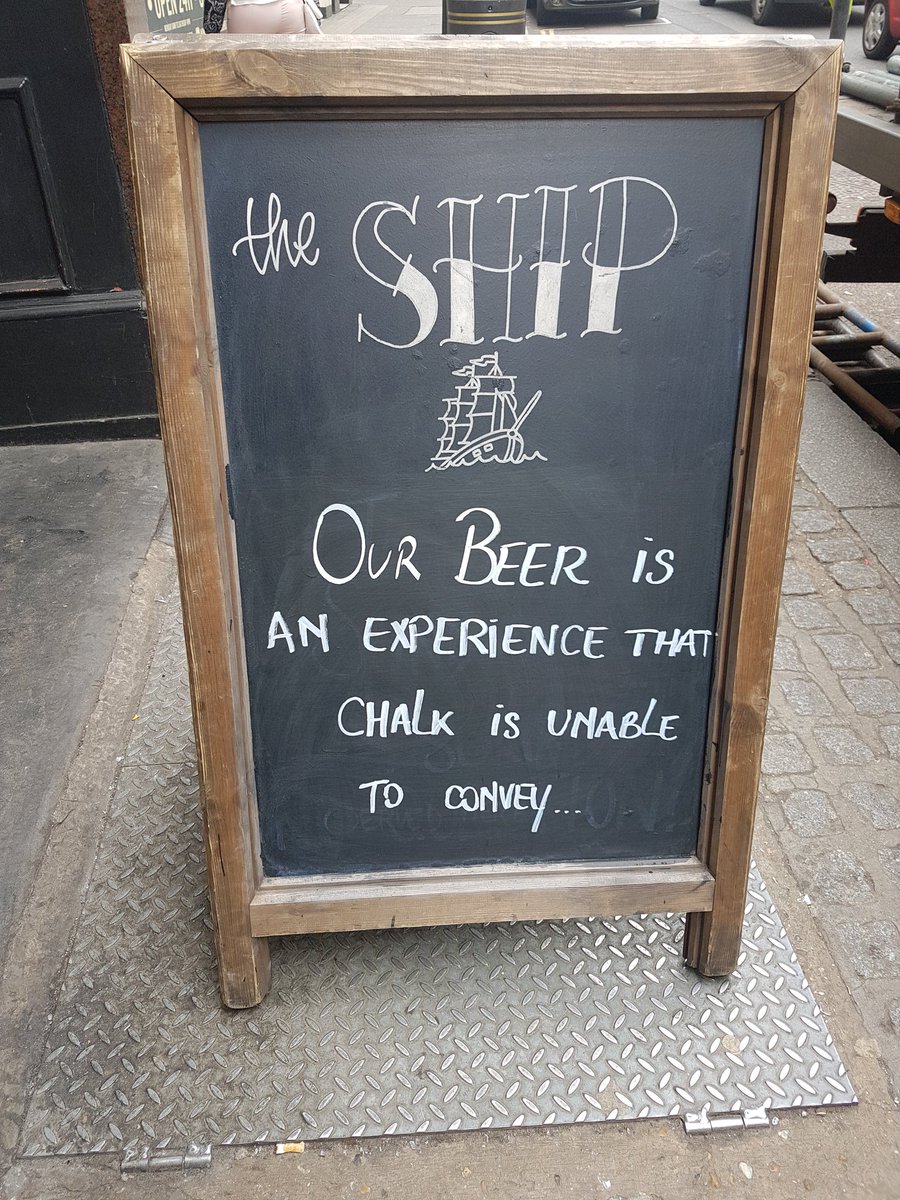 OPEN 24H
the SHIP
OUR BEER is
AN EXPERiENCE THAT
CHALK is UNABLE
TO CONVEY...